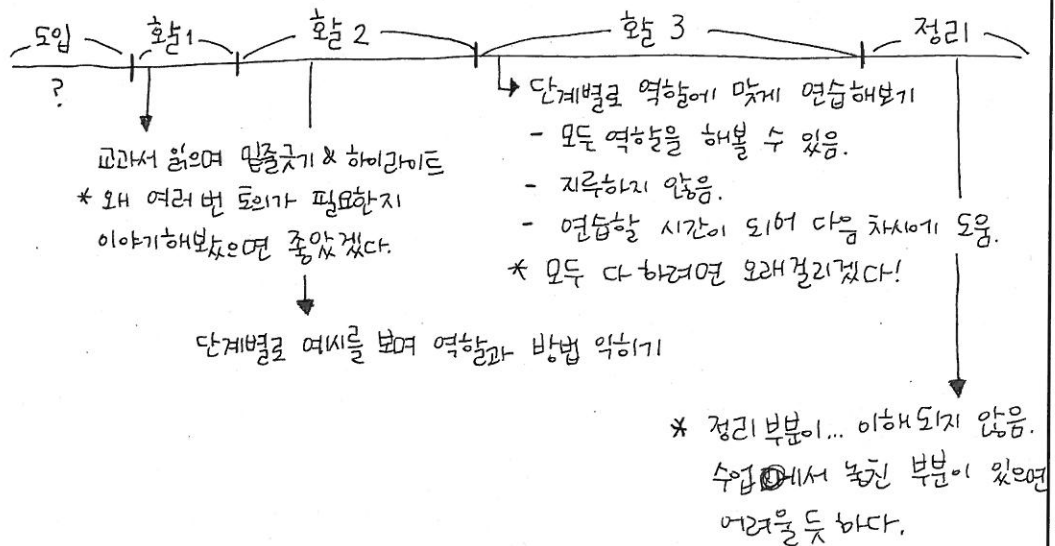 도입 활동1 활동 2 활동 3 정리
?
교과서 읽으며 밑줄긋기 & 하이라이트
* 왜 여러 번 토의가 필요한지
이야기해봤으면 좋았겠다.
단계별로 예시를 보며 역할과 방법 익히기
단계별로 역할에 맞게 연습해보기
- 모든 역할을 해볼 수 있음.
- 지루하지 않음.
- 연습할 시간이 되어 다음 차시에 도움.
* 모두 다 하려면 오래걸리겠다!
* 정리 부분이... 이해되지 않음.
수업에서 놓친 부분이 있으면
어려울 듯 하다.